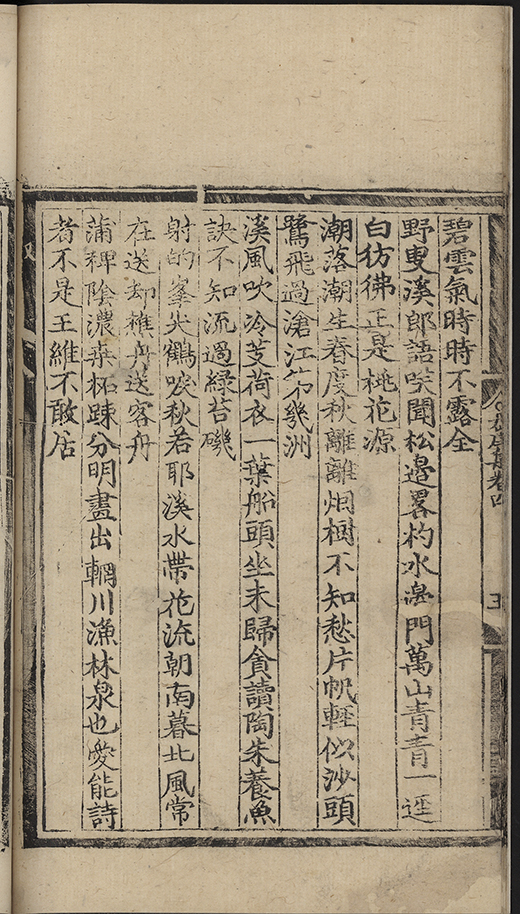 碧雲氣時時不露全
野叟溪郎語笑聞松邉畧杓水邉門萬山青青一逕
白彷彿正是桃花源
潮落潮生春度秋離離烟樹不知愁片帆輕似沙頭
鷺飛過滄江第幾洲
溪風吹冷芰荷衣一葉船頭坐未歸貪讀陶朱養魚
訣不知流過緑苔磯
射的峯尖鶴唳秋若耶溪水帶花流朝南暮北風常
在送却樵舟送客舟
蒲稗陰濃桒柘踈分明畫出輞川漁林泉也愛能詩
者不是王維不敢居
卷四
五